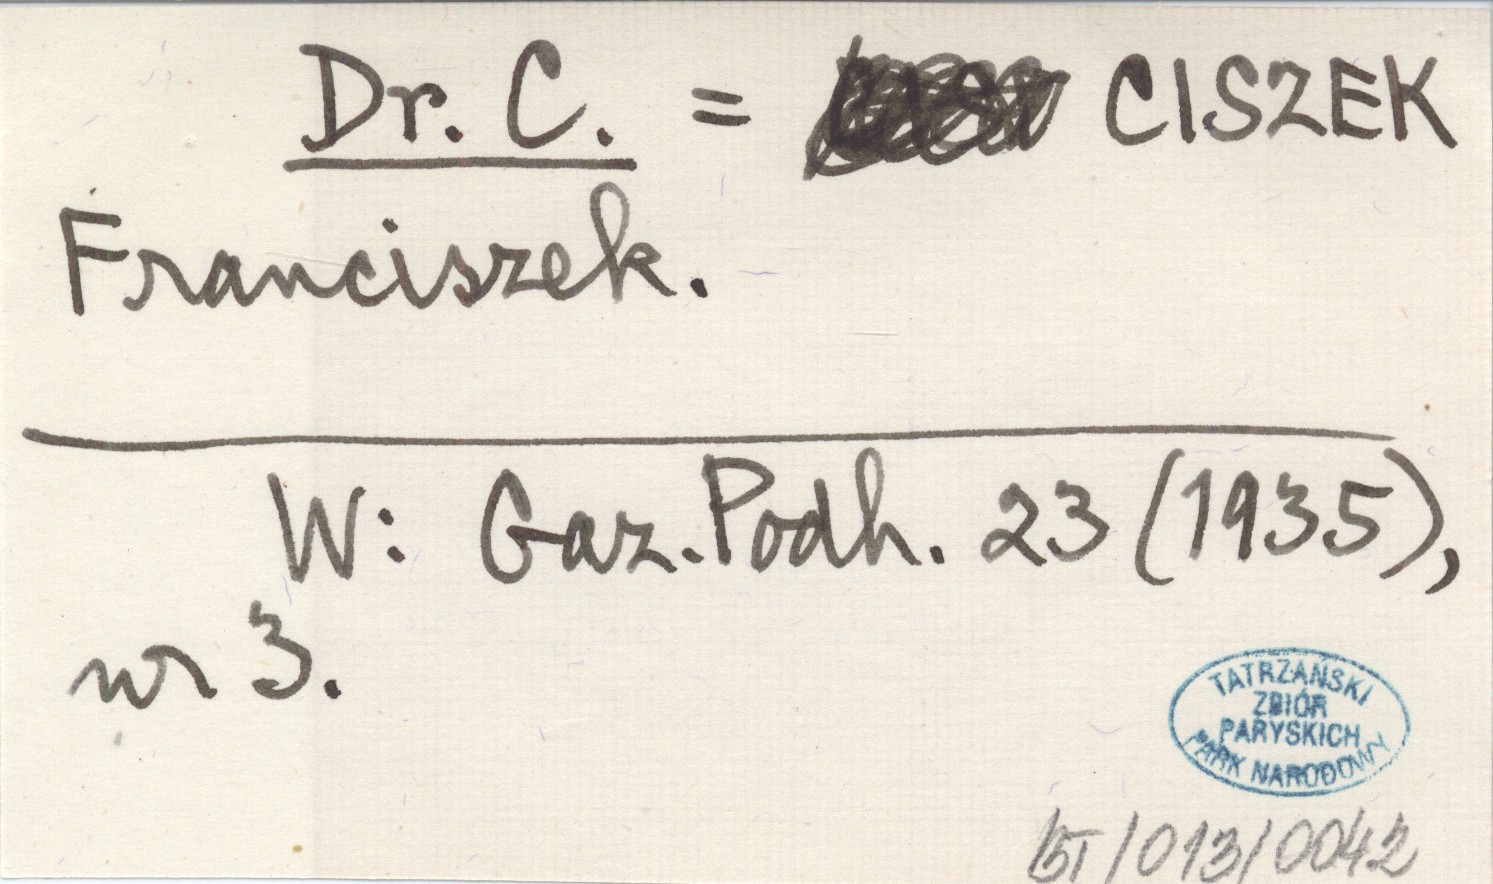 Dr. C. = CISZEK
Franciszek.
W: Gaz. Podh. 23 (1935),
nr 3.
TATRZAŃSKI
ZBIÓR
PARYSKICH
PARK NARODOWY
/013/0042